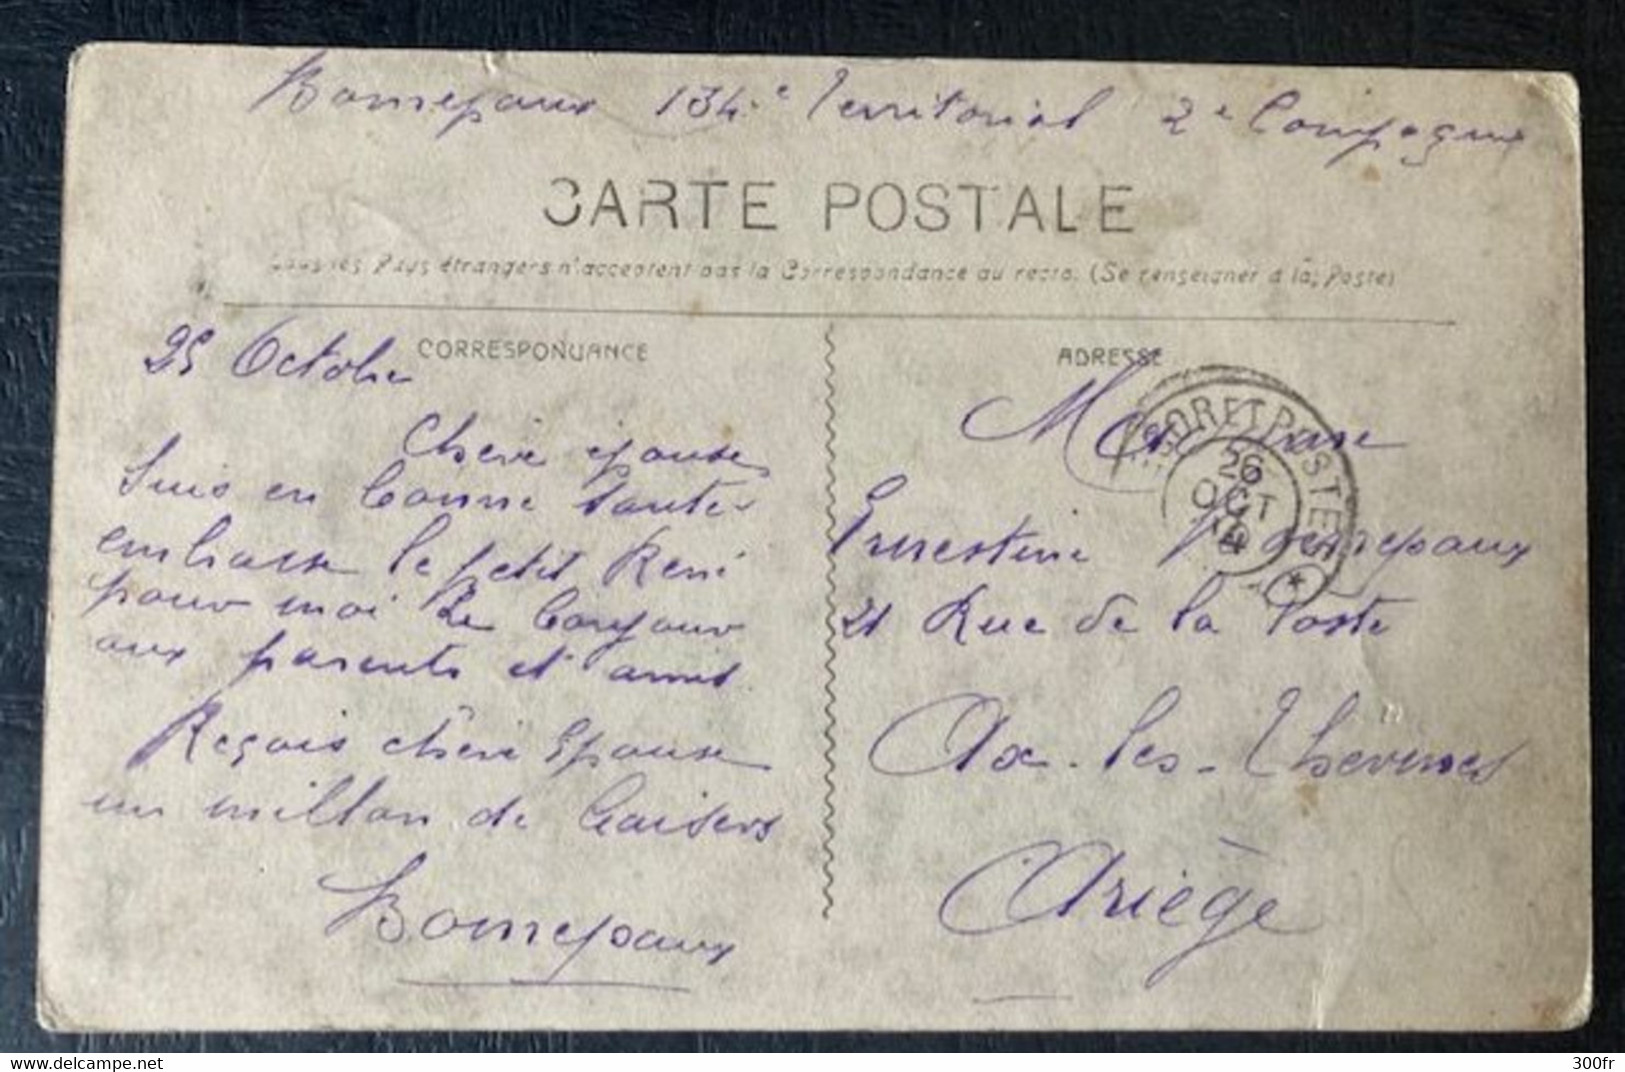 Bonnepaux 134e Territorial 2e Compagnie
CARTE POSTALE
Tous les Pays étrangers n'acceptent pas la Correspondance au recto. (Se renseigner à la Poste)
CORRESPONDANCE
ADRESSE
25 Octobre
Chère épouse
Suis en bonne santé
embrasse le petit René
pour moi Le bonjour
aux parents et amis
Reçois chère Epouse
un million de baisers
Bonnepaux
TRESOR ET POSTES
26
OCT
14
*
Madame
Ernestine Bonnepaux
21 Rue de la Poste
Ax-les-Thermes
Ariège
delcampe.net
300fr